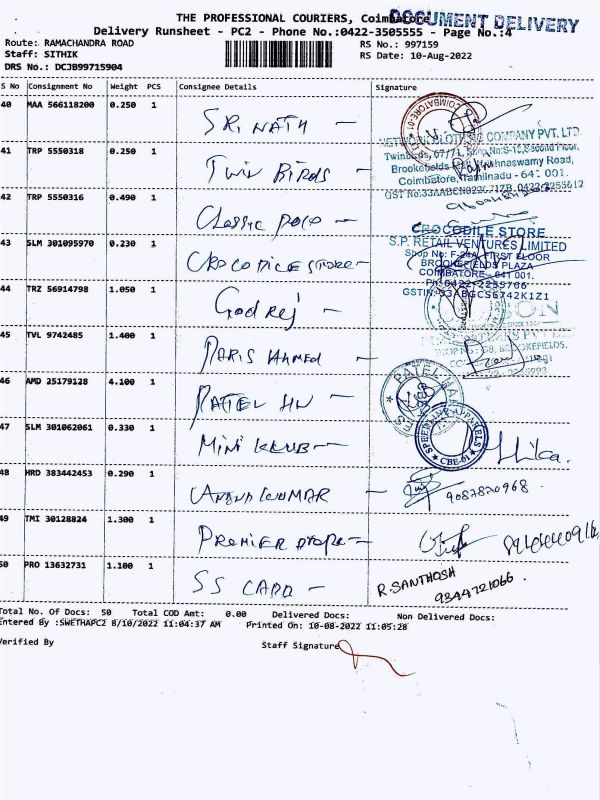 THE PROFESSIONAL COURIERS, Coimbatore
DOCUMENT DELIVERY
Delivery Runsheet - PC2 - Phone No.:0422-3505555 - Page No.:4
Route: RAMACHANDRA ROAD
RS No.: 997159
Staff: SITHIK
RS Date: 10-Aug-2022
DRS No.: DCJB99715904
S No Consignment No Weight PCS Consignee Details Signature
40 MAA 566118200 0.250 1 SRI NATH -
COMPANY PVT. LTD.
41 TRP 5550318 0.250 1 Twin Birds -
Krishnaswamy Road,
Coimbatore, Tamilnadu - 641 001.
42 TRP 5550316 0.490 1 Classic Polo -
CROCODILE STORE
S.P. RETAIL VENTURES LIMITED
43 SLM 301095970 0.230 1 CROCODILE STORE -
Shop No: F-24A, FIRST FLOOR
BROOKEFIELDS PLAZA
COIMBATORE - 641 001.
PH: 0422-2255766
44 TRZ 56914798 1.050 1 Godrej -
GSTIN: 33ABGCS6742K1Z1
45 TVL 9742485 1.400 1 PARIS AHMED -
46 AMD 25179128 4.100 1 PATEL HN -
PATEL
47 SLM 301062061 0.330 1 MINI KLUB -
SPEED LIFE APPARELS
CBE-01
48 HRD 383442453 0.290 1 ANAND KUMAR - 9087820968.
49 TMI 30128824 1.300 1 PREMIER
50 PRO 13632731 1.100 1 SS CARD - R. SANTHOSH
9344721066.
Total No. Of Docs: 50 Total COD Amt: 0.00 Delivered Docs: Non Delivered Docs:
Entered By :SWETHAPC2 8/10/2022 11:04:37 AM Printed On: 10-08-2022 11:05:28
Verified By Staff Signature